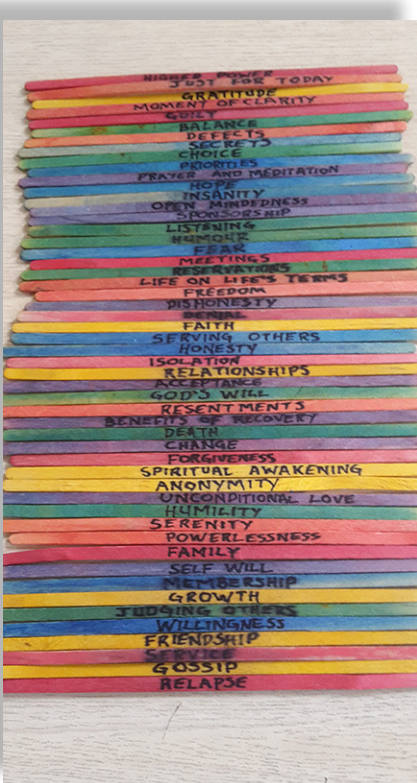 HIGHER POWER
JUST FOR TODAY
GRATITUDE
MOMENT OF CLARITY
GUILT
BALANCE
DEFECTS
SECRETS
CHOICE
PRIORITIES
PRAYER AND MEDITATION
HOPE
INSANITY
OPEN MINDEDNESS
SPONSORSHIP
LISTENING
HUMOUR
FEAR
MEETINGS
RESERVATIONS
LIFE ON LIFE'S TERMS
FREEDOM
DISHONESTY
DENIAL
FAITH
SERVING OTHERS
HONESTY
ISOLATION
RELATIONSHIPS
ACCEPTANCE
GOD'S WILL
RESENTMENTS
BENEFITS OF RECOVERY
DEATH
CHANGE
FORGIVENESS
SPIRITUAL AWAKENING
ANONYMITY
UNCONDITIONAL LOVE
HUMILITY
SERENITY
POWERLESSNESS
FAMILY
SELF WILL
MEMBERSHIP
GROWTH
JUDGING OTHERS
WILLINGNESS
FRIENDSHIP
SERVICE
GOSSIP
RELAPSE